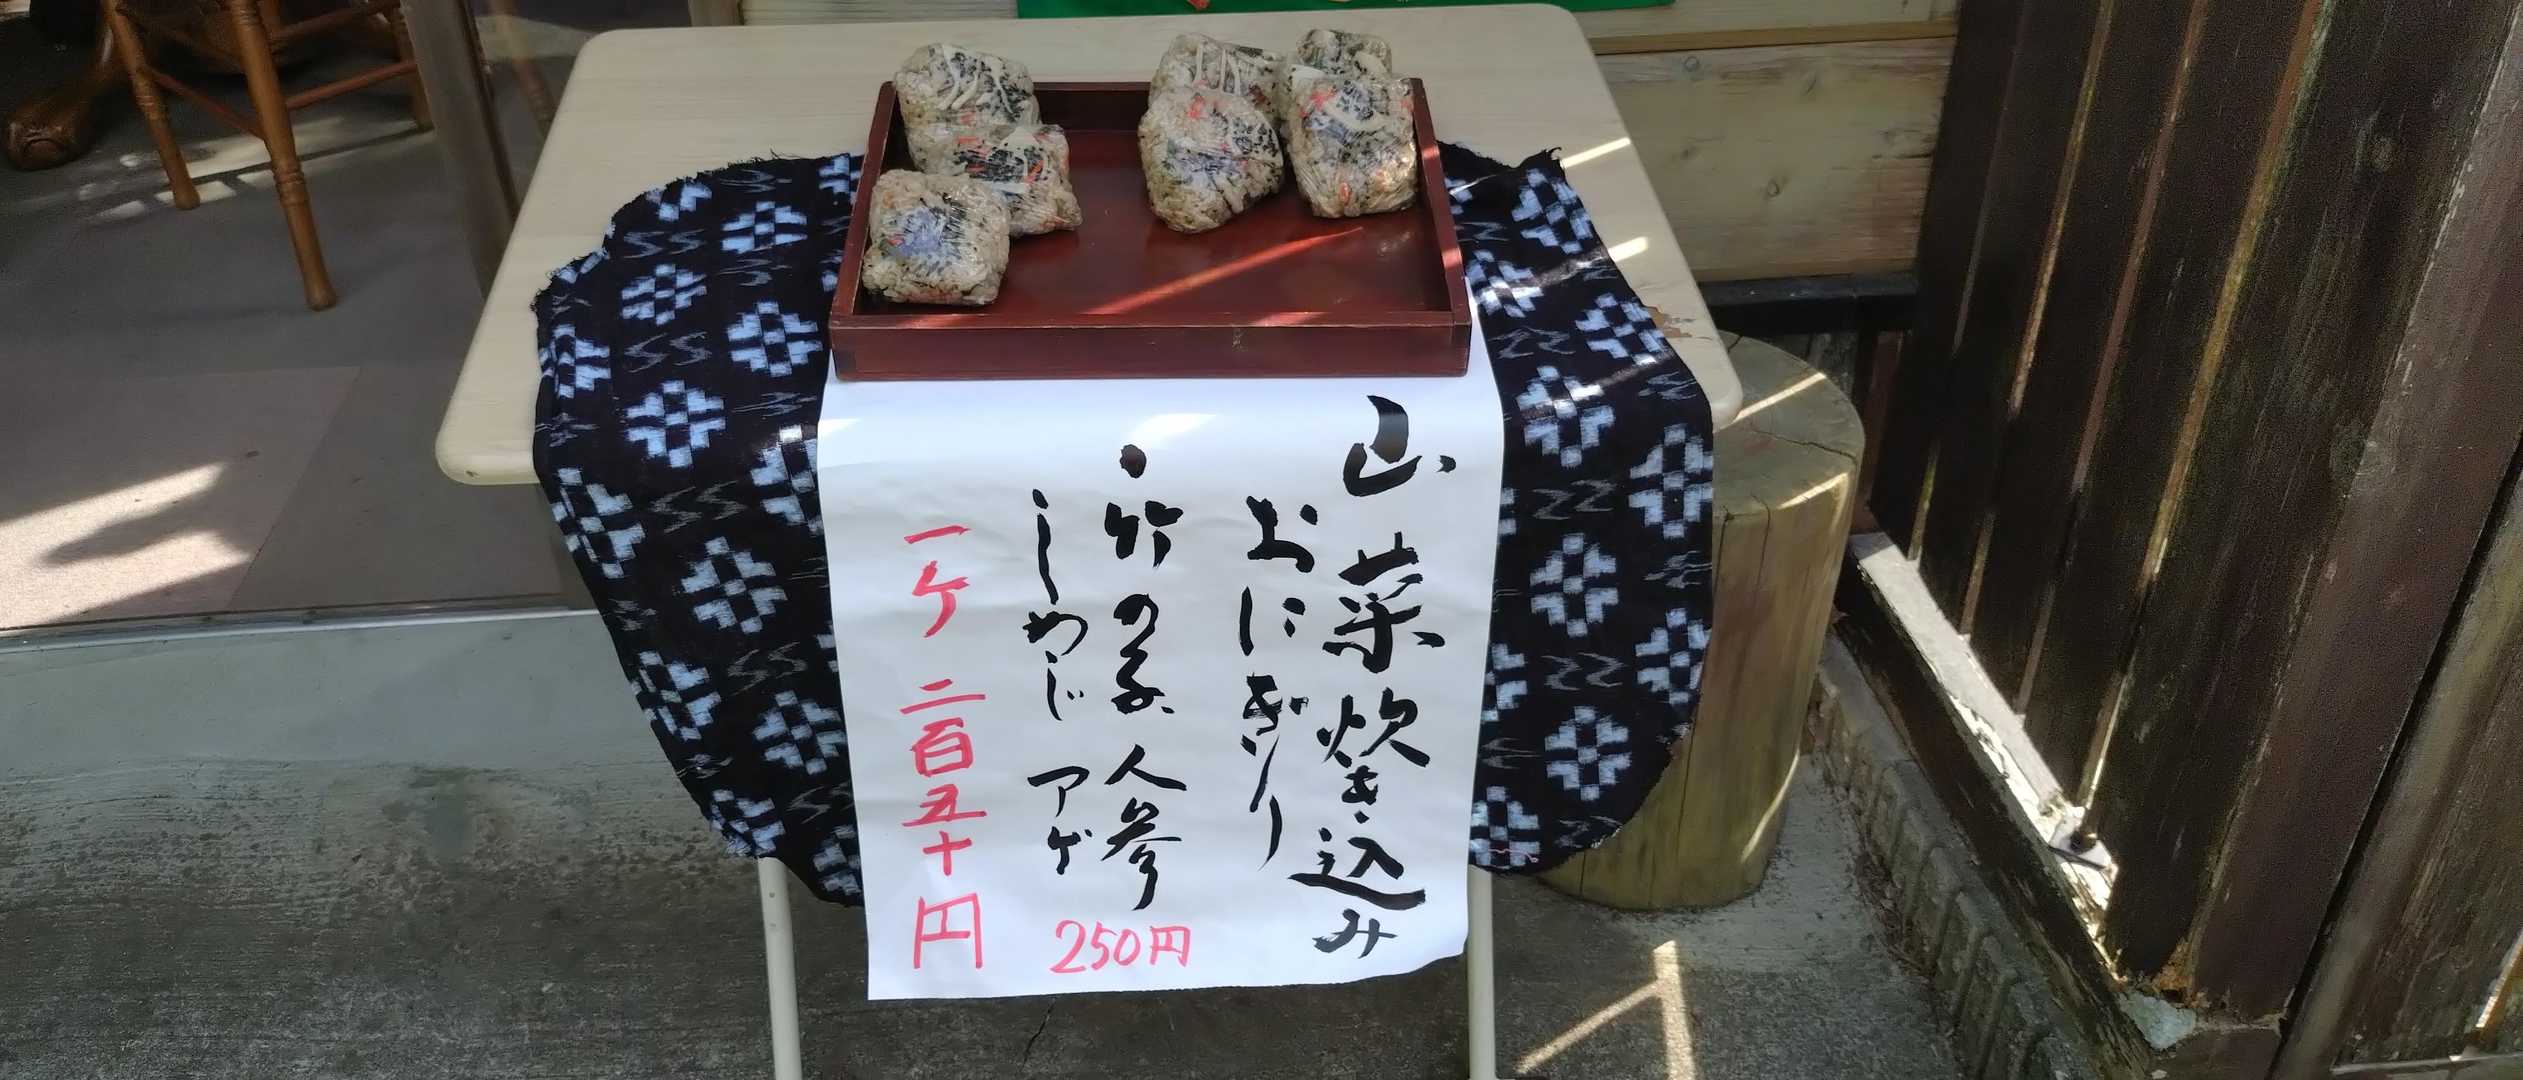 山菜炊き込み
おにぎり
・竹の子、人参
しめじ アゲ
250円
一ケ 二百五十円